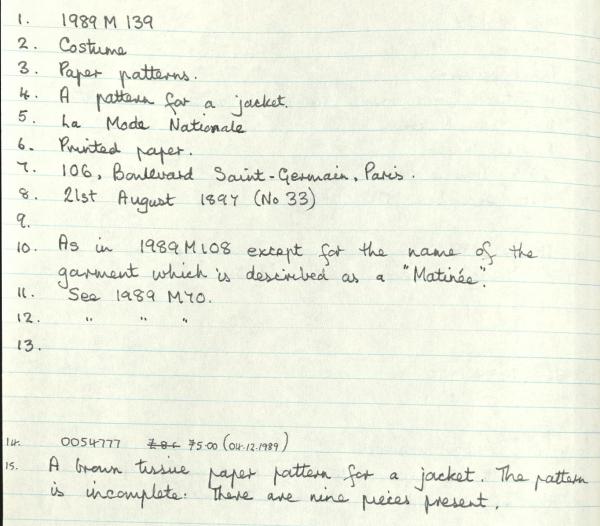 1. 1989 M 139
2. Costume
3. Paper patterns.
4. A pattern for a jacket.
5. La Mode Nationale
6. Printed paper.
7. 106, Boulevard Saint-Germain, Paris.
8. 21st August 1897 (No 33)
9.
10. As in 1989 M108 except for the name of the
garment which is described as a "Matinée".
11. See 1989 M70.
12. " " "
13.
14. 0054777 75.00 (04.12.1989)
15. A brown tissue paper pattern for a jacket. The pattern
is incomplete. There are nine pieces present.